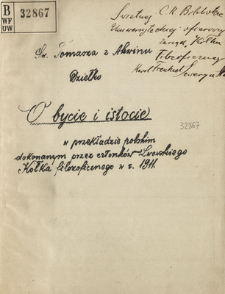 B
WF
UW
32867
Świetnej C. K. Bibliotece
Uniwersyteckiej ofiarowuje
Kółka
Filozoficznego
Karol Frenkel
Św. Tomasza z Akwinu
Dziełko
O bycie i istocie
32867
w przekładzie polskim
dokonanym przez członków Lwowskiego
Kółka filozoficznego w r. 1911.